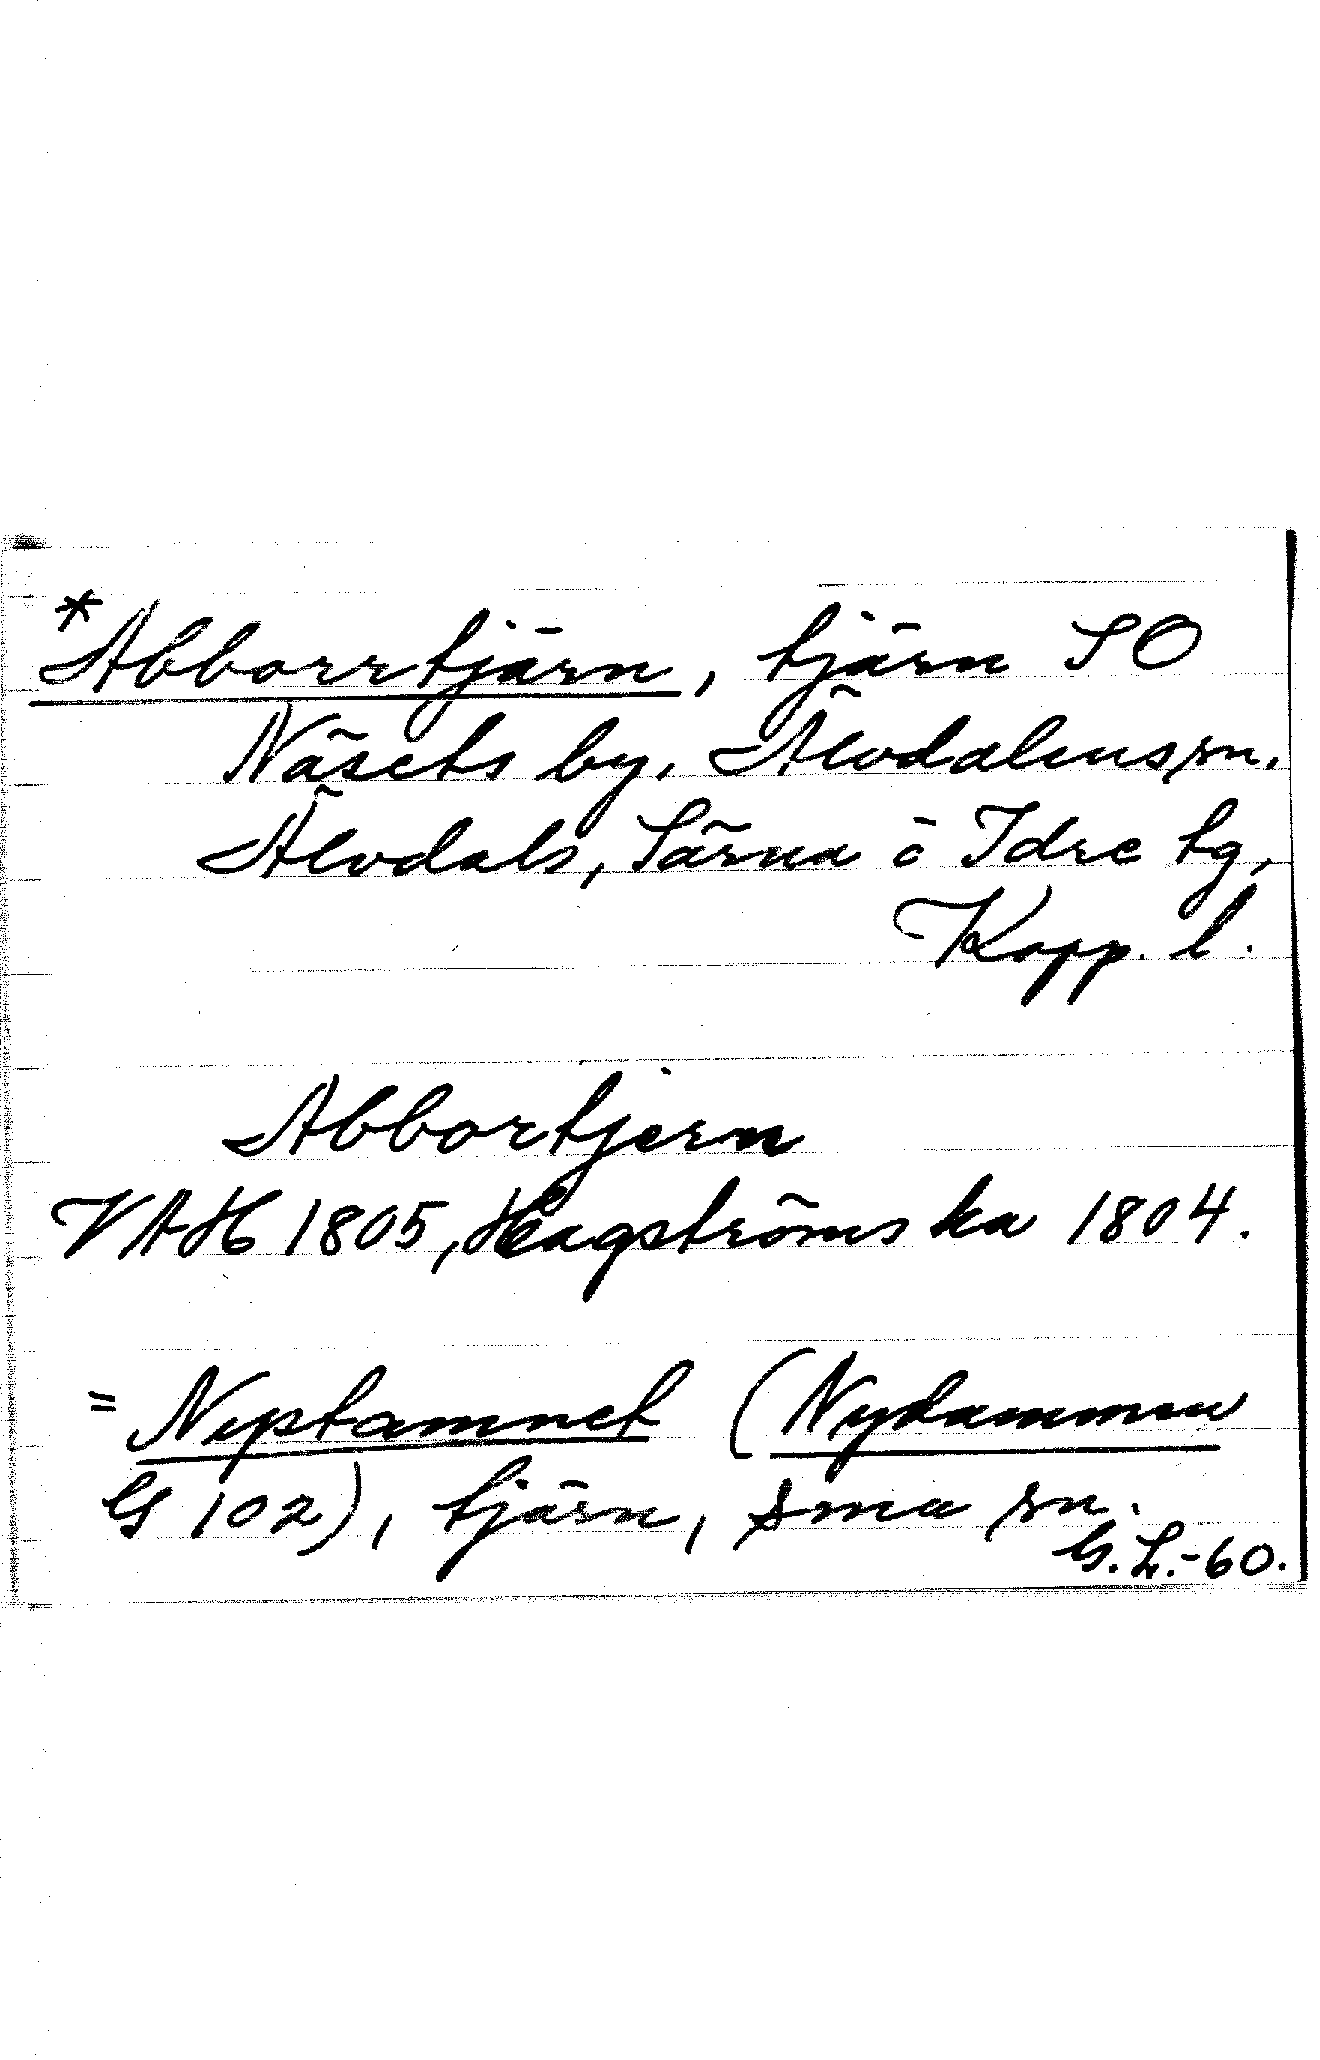 *Abborrtjärn, tjärn SO
Näsets by, Älvdalens sn.
Älvdals, Särna o Idre tg,
Kopp. l.
Abbortjern
VAH 1805, Hagströms ka 1804.
= Neptamnet (Nydammen
G 102), tjärn, sma sn.
G.L.-60.